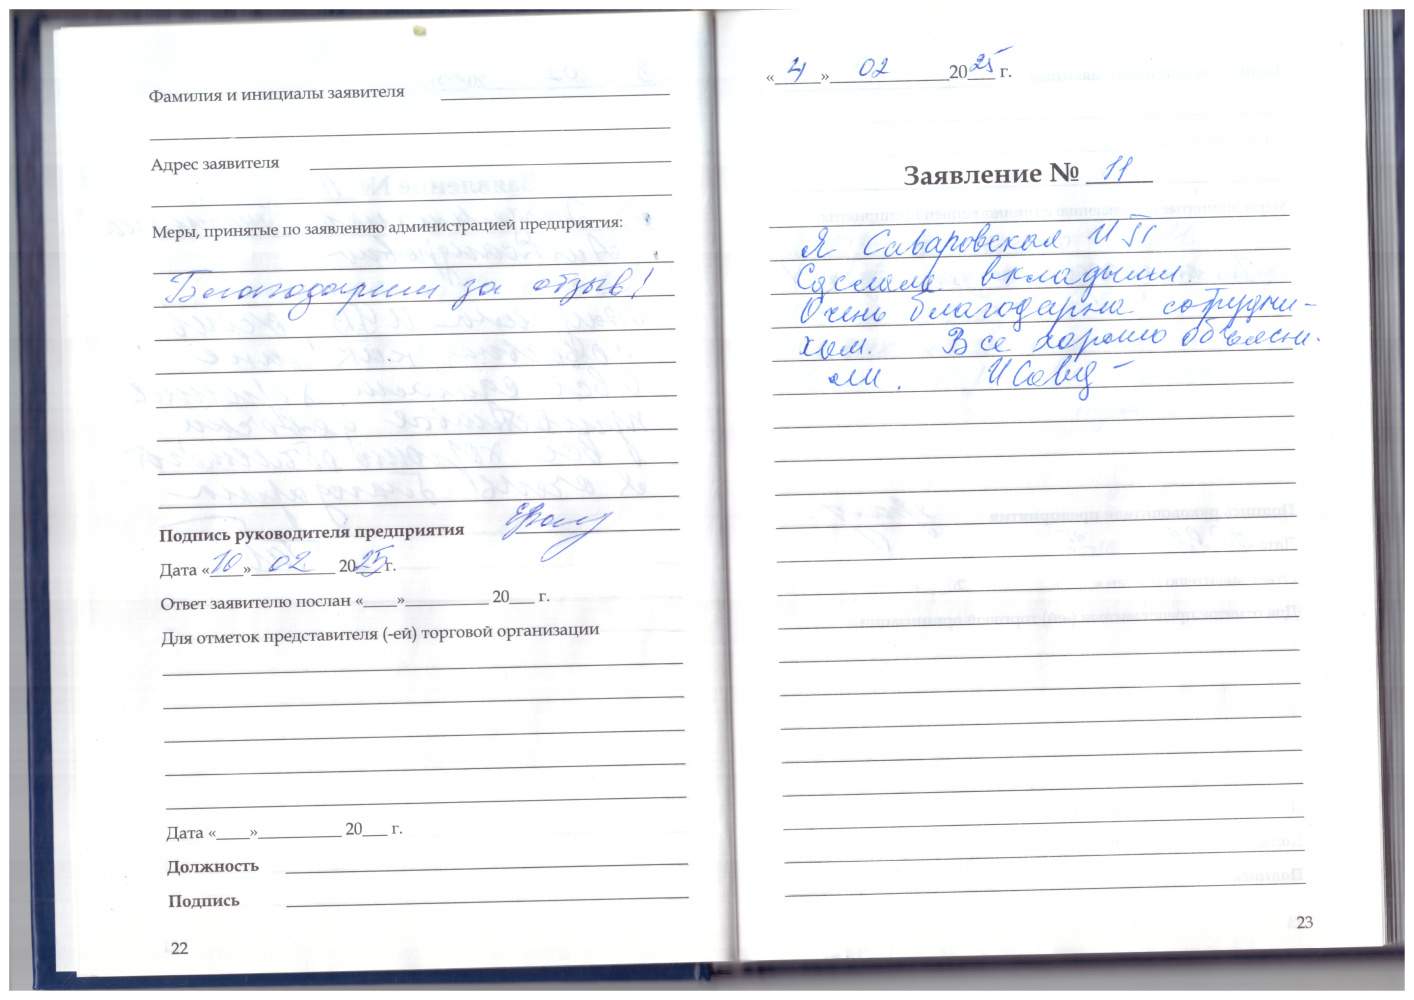 Фамилия и инициалы заявителя
Адрес заявителя
Меры, принятые по заявлению администрацией предприятия:
Благодарим за отзыв!
Подпись руководителя предприятия
Дата «10» 02 2025 г.
Ответ заявителю послан «____»__________ 20___ г.
Для отметок представителя (-ей) торговой организации
Дата «____»__________ 20___ г.
Должность
Подпись
22
«4» 02 2025 г.
Заявление № 11
Я Саваровская И П
Сделала вкладыши.
Очень благодарна сотрудни-
кам. Все хорошо объясни-
ли.
23